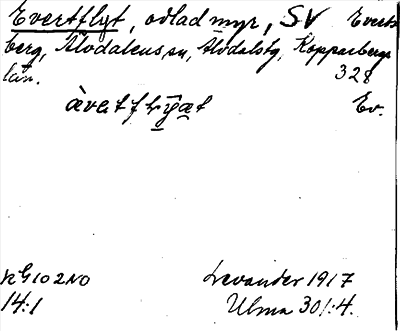 Evertflyt, odlad myr, SV Everts-
berg, Älvdalens sn, Älvdalstg, Kopparbergs
län. 328
àvertflyat Ev.
kG102NO Levander 1917
14:1 Ulma 301:4.